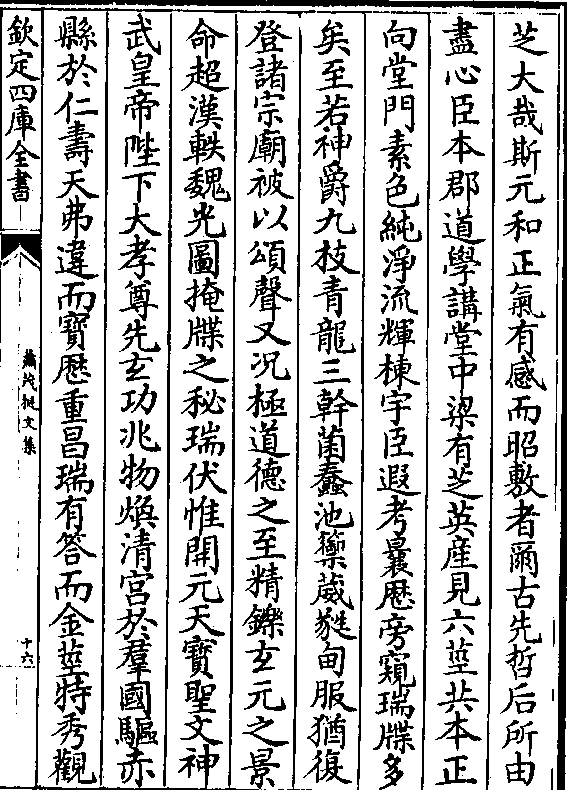 芝大哉斯元和正氣有感而昭敷者爾古先哲后所由
盡心臣本郡道學講堂中梁有芝英産見六莖共本正
向堂門素色純淨流輝棟宇臣遐考曩歴旁窺瑞牒多
矣至若神爵九枝青龍三幹菌蠢池籞葳蕤甸服猶復
登諸宗廟被以頌聲又况極道德之至精鑠玄元之景
命超漢軼魏光圖掩牒之秘瑞伏惟開元天寶聖文神
武皇帝陛下大孝尊先玄功兆物煥清宫於羣國驅赤
縣於仁壽天弗違而寶歴重昌瑞有答而金莖特秀觀
欽定四庫全書
蕭茂挺文集
十六